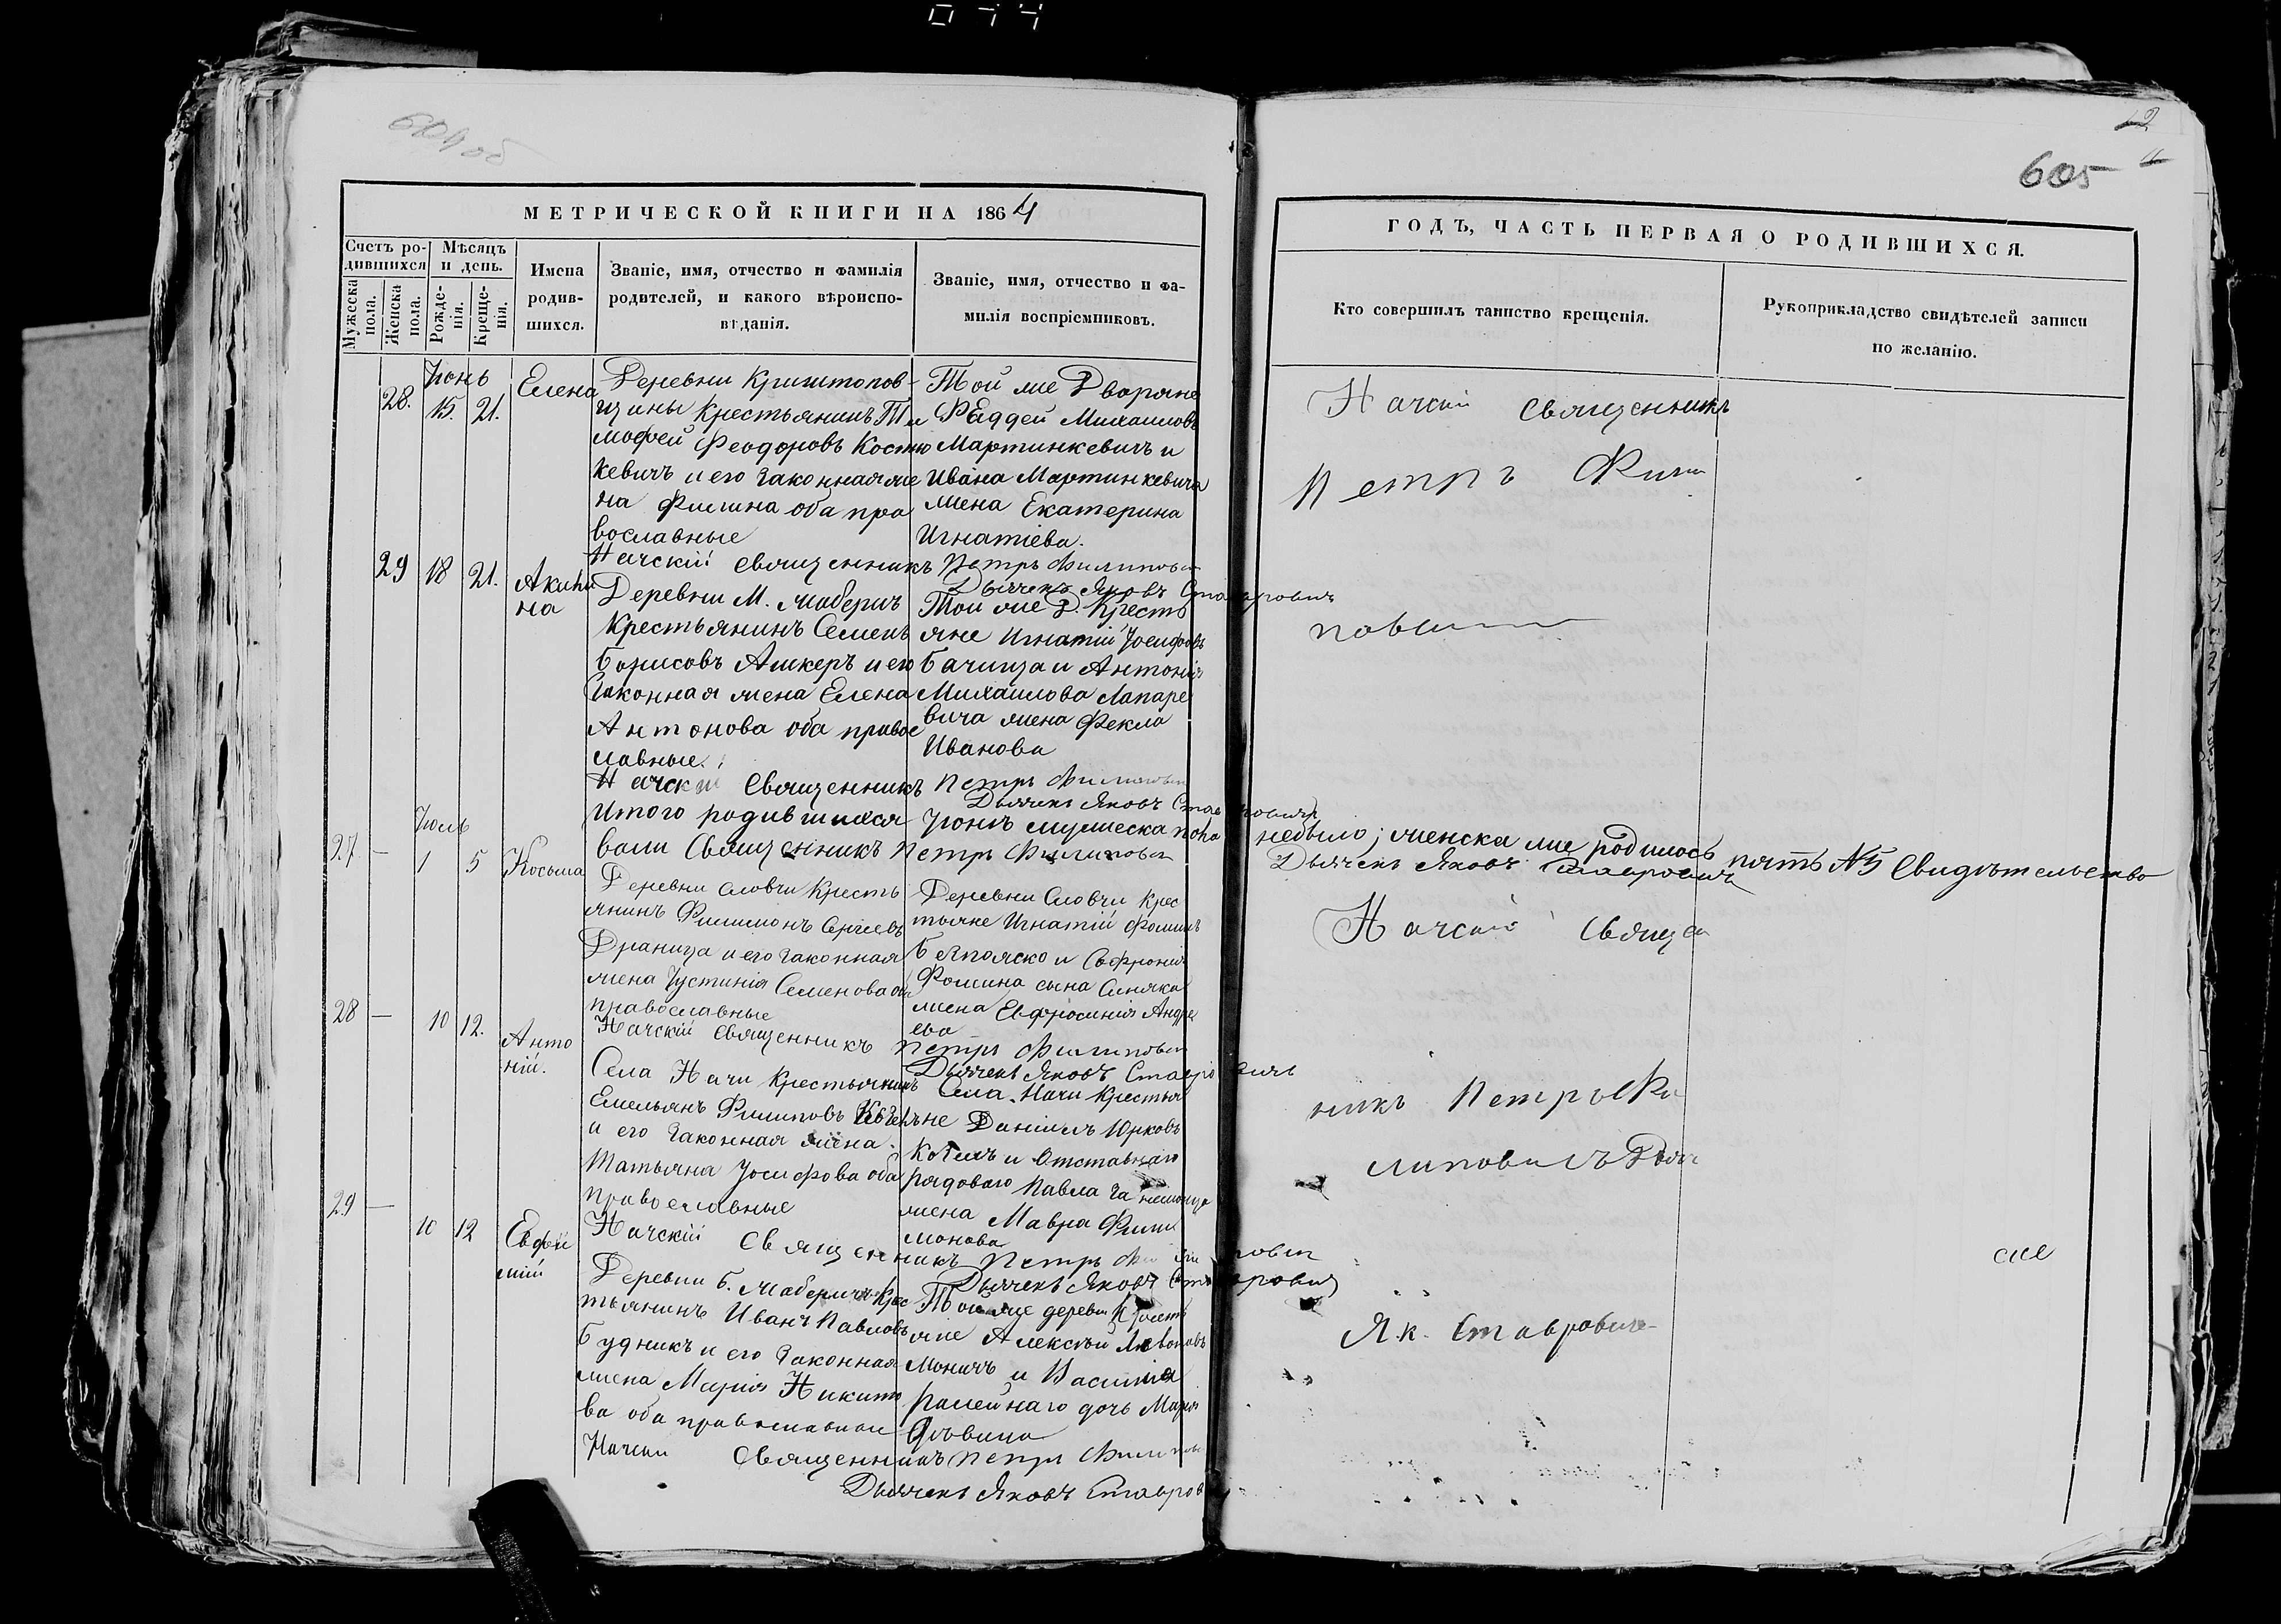 604 об
12
605
МЕТРИЧЕСКОЙ КНИГИ НА 1864
ГОДЪ, ЧАСТЬ ПЕРВАЯ О РОДИВШИХСЯ.
Счетъ ро-
дившихся
Мужеска
пола.
Женска
пола.
Мѣсяцъ
и день.
Рожде-
нія.
Креще-
нія.
Имена
родив-
шихся.
Званіе, имя, отчество и фамилія
родителей, и какого вѣроиспо-
вѣданія.
Званіе, имя, отчество и фа-
милія воспріемниковъ.
Кто совершилъ таинство крещенія.
Рукоприкладство свидѣтелей записи
по желанію.
Іюнь
28. 15. 21.
Елена
Деревни Криштопов-
щины Крестьянинъ Ти
мофей Феодоровъ Костю
кевичъ и его законная же
на оба пра
вославные
Той же Дворяне
Фаддей Михаиловъ
Мартинкевичъ и
Ивана Мартинкевича
жена Екатерина
Игнатіева.
Начскій Священникъ Петръ Филиповичъ
Дьячекъ Яковъ Ставровичъ
29 18 21.
Акили
на
Деревни М. Жаберичъ
Крестьянинъ Семенъ
Борисовъ Ашкеръ и его
законная жена Елена
Антонова оба правос
лавные.
Той же Д. Кресть
яне Игнатій Іосифовъ
Бачища и Антонія
Михайлова Лапаре
вича жена Фекла
Иванова
Начскій Священникъ Петръ Филиповичъ
Дьячекъ Яковъ Ставровичъ
Итого родившихся Іюнь мужеска пола небыло; женска же родилось пять №5 Свидѣтельство
вали Священникъ Петръ Филиповичъ Дьячекъ Яковъ Ставровичъ
Іюль
27 — 1 5
Косьма
Деревни Словчи Кресть
янинъ Филимонъ Сергіевъ
Драница и его законная
жена Іустинія Семенова оба
православные
Деревни Словчи Крес
тьяне Игнатій Фоминъ
и Софронія
Фомина сына Синяка
жена Евфросинія Андре
ева
Начскій Священникъ Петръ Филиповичъ
Дьячекъ Яковъ Ставровичъ
28 — 10 12.
Анто
ній.
Села Начи Крестьянинъ
Емельянъ Филиповъ
и его законная жена
Татьяна Іосифова оба
православные
Села Начи Крестья
не Даніилъ Юрковъ
и Отставнаго
рядоваго Павла
жена Мавра Фили
монова
Начскій Священникъ Петръ Филиповичъ
Дьячекъ Яковъ Ставровичъ
29 — 10 12
Евфи
мій
Деревни Б. Жаберичъ Крес
тьянинъ Иванъ Павловъ
Будникъ и его законная
жена Марія Никито
ва оба православные
Той же деревни Кресть
яне Алексѣй
Моничъ и Василія
дочь Марія
Начскій Священникъ Петръ Филиповичъ
Дьячекъ Яковъ Ставров
Начскій Священникъ
Петръ Фили
повичъ
Начскій Священ
никъ Петръ Фи
липовичъ Дьяч
Як. Ставровичъ